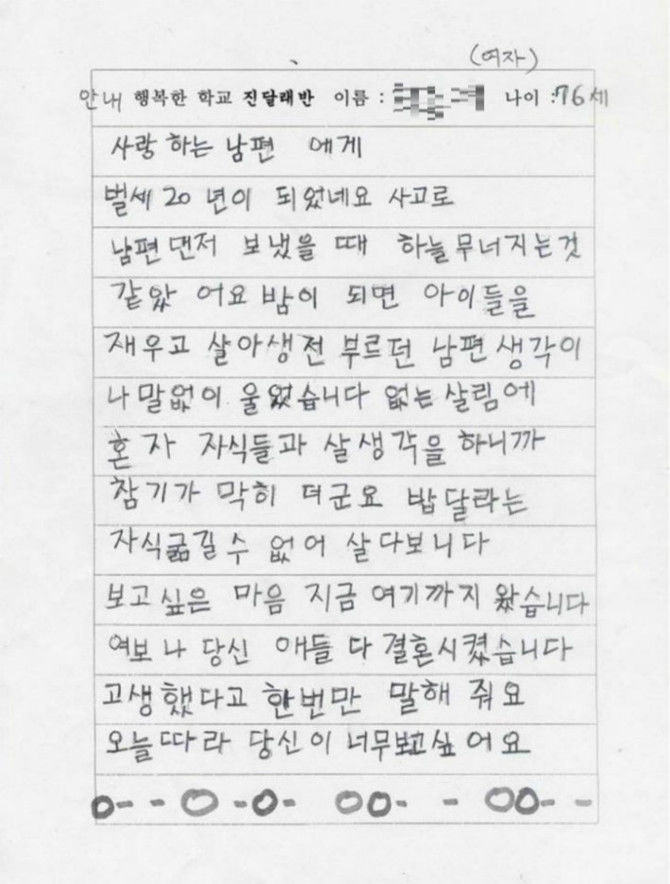 (여자)
안내 행복한 학교 진달래반 이름 : 나이 :76세
사랑 하는 남편 에게
벌세 20 년이 되었네요 사고로
남편먼저 보냈을 때 하늘무너지는것
같았 어요 밤이 되면 아이들을
재우고 살아생전 부르던 남편생각이
나 말없이 울었습니다 없는 살림에
혼 자 자식들과 살생각을 하니까
참기가 막히 더군요 밥달라는
자식굶길수 없어 살다보니다
보고싶은 마음 지금 여기까지 왔습니다
여보 나 당신 애들 다 결혼시켰습니다
고생했다고 한번만 말해 줘요
오늘따라 당신이 너무보고싶어요